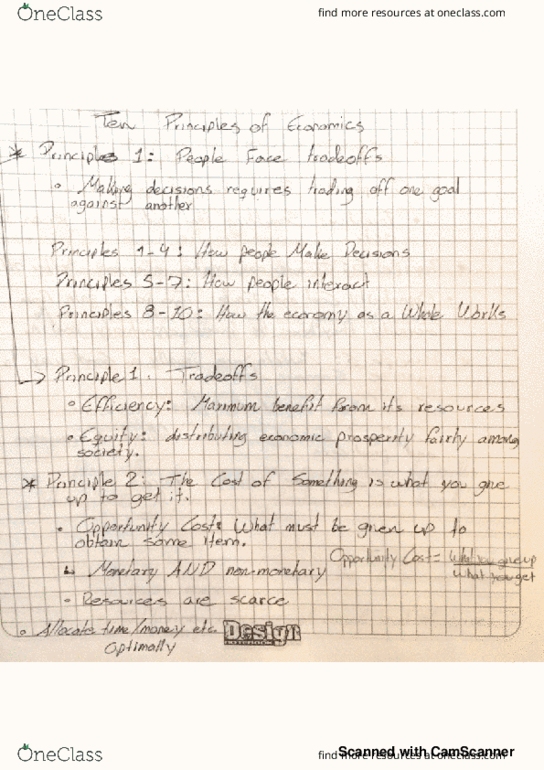 OneClass
find more resources at oneclass.com
Ten Principles of Economics
* Principles 1: People Face tradeoffs
• Making decisions requires trading off one goal
against another
Principles 1-4: How people Make Decisions
Principles 5-7: How people interact
Principles 8-10: How the economy as a Whole Works
→ Principle 1. Tradeoffs
• Efficiency: Maximum benefit from its resources
• Equity: distributing economic prosperity fairly among
society.
* Principle 2: The Cost of Something is what you give
up to get it.
• Opportunity Cost: What must be given up to
obtain some item.
Opportunity Cost = What you give up
What you get
↳ Monetary AND non-monetary
• Resources are scarce
• Allocate time/money etc.
Optimally
Design
OneClass
find more resources at oneclass.com
Scanned with CamScanner